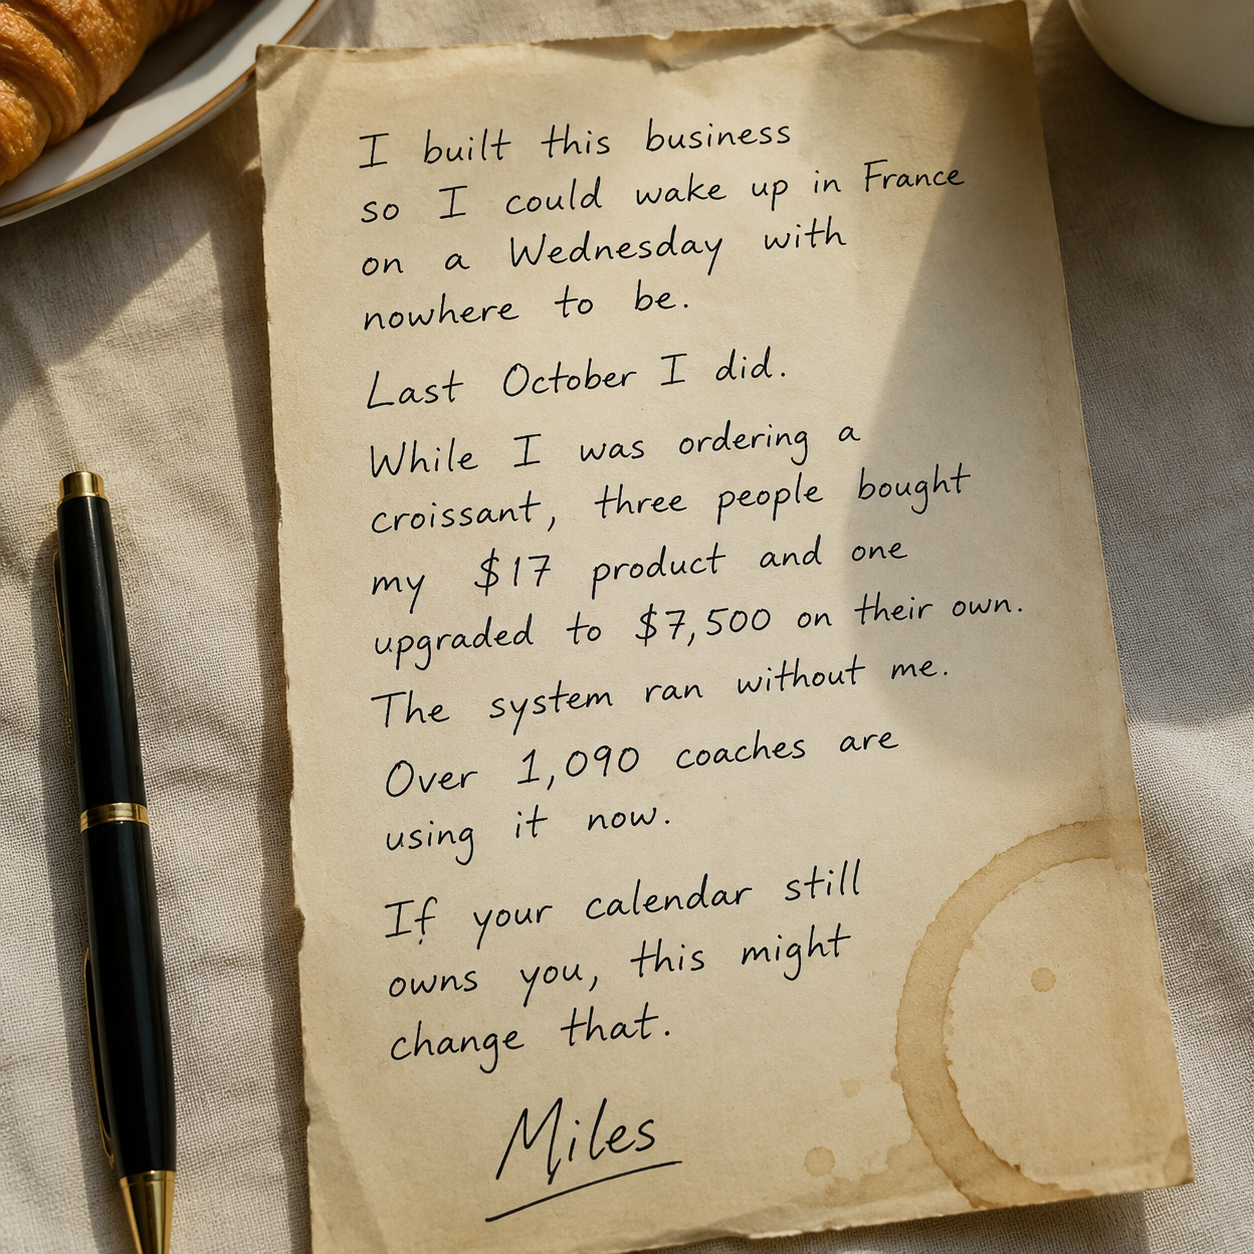 I built this business
so I could wake up in France
on a Wednesday with
nowhere to be.
Last October I did.
While I was ordering a
croissant, three people bought
my $17 product and one
upgraded to $7,500 on their own.
The system ran without me.
Over 1,090 coaches are
using it now.
If your calendar still
owns you, this might
change that.
Miles